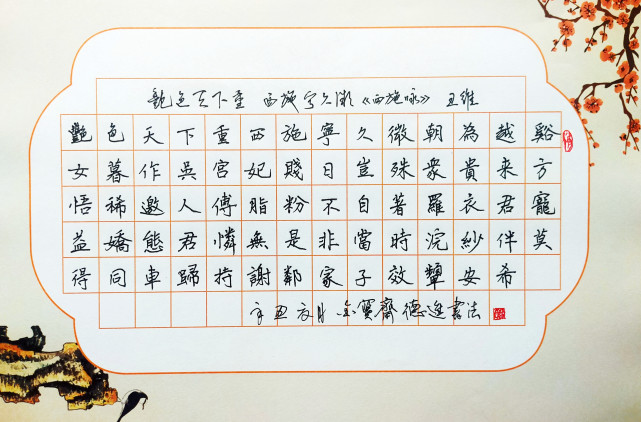 艶色天下重 西施寧久微《西施咏》 王維
艷色天下重西施寧久微朝為越谿
女暮作吳宮妃賤日豈殊衆貴来方
悟稀邀人傅脂粉不自著羅衣君寵
益嬌態君憐無是非當時浣紗伴莫
得同車歸持謝鄰家子效顰安希
辛丑亥月 宝寶齋德進書法